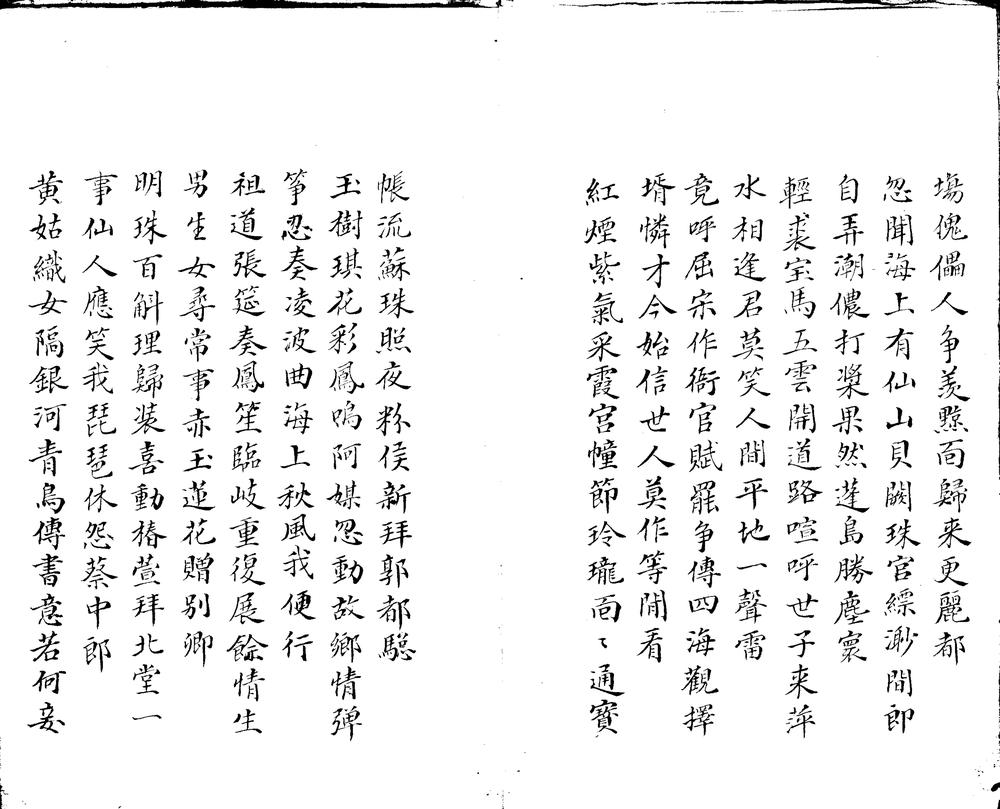 塲傀儡人争羡黥面歸来更麗都
忽聞海上有仙山貝闕珠宫縹渺間即
自弄潮儂打槳果然蓬島勝塵寰
輕裘宝馬五雲開道路喧呼世子来萍
水相逢君莫笑人間平地一聲雷
竟呼屈宋作衙官賦罷争傳四海觀擇
壻憐才今始信世人莫作等閒看
紅煙紫氣采霞宫幢節玲瓏面〻通寳
帳流蘇珠照夜粉侯新拜郭都騘
玉樹琪花彩鳳鳴阿媒忽動故鄉情弹
筝忍奏凌波曲海上秋風我便行
祖道張筵奏鳳笙臨岐重復展餘情生
男生女尋常事赤玉蓮花贈别卿
明珠百斛理歸装喜動椿萱拜北堂一
事仙人應笑我琵琶休怨蔡中郎
黄姑織女隔銀河青鳥傳書意若何妾